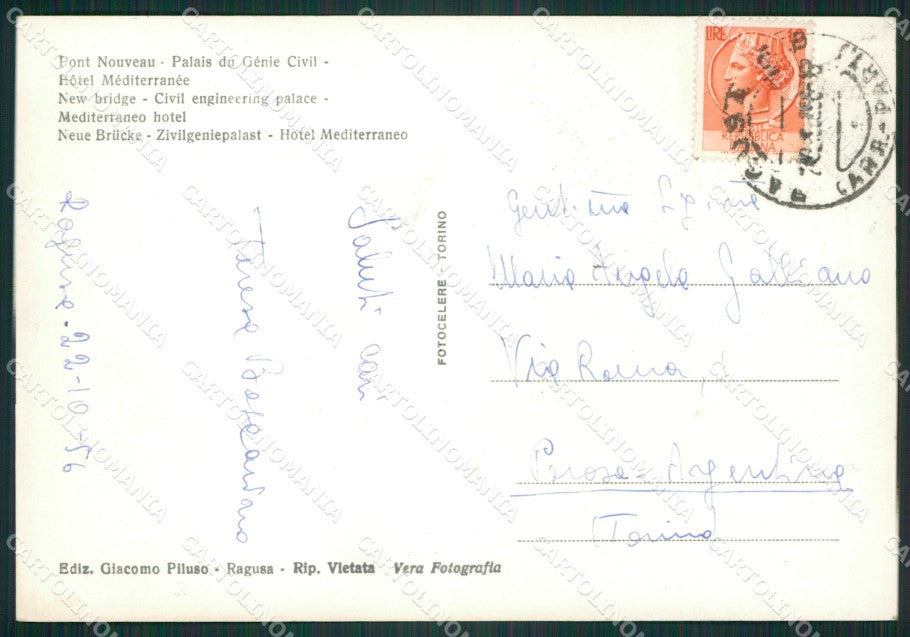 Pont Nouveau - Palais du Génie Civil -
Hôtel Méditerranée
New bridge - Civil engineering palace -
Mediterraneo hotel
Neue Brücke - Zivilgeniepalast - Hotel Mediterraneo
LIRE
REPUBBLICA
RAGUSA
ARR-PART
Ragusa - 22-10-56
Saluti cari
Teresa
FOTOCELERE - TORINO
Maria Angela Galliano
Via Roma,
Pirosa - Argentina
(Torino)
Ediz. Giacomo Piluso - Ragusa - Rip. Vietata Vera Fotografia
CARTOLINOMANIA